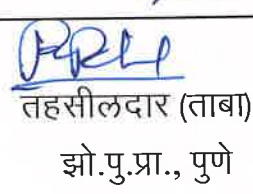 तहसीलदार (ताबा)
झो.पु.प्रा., पुणे